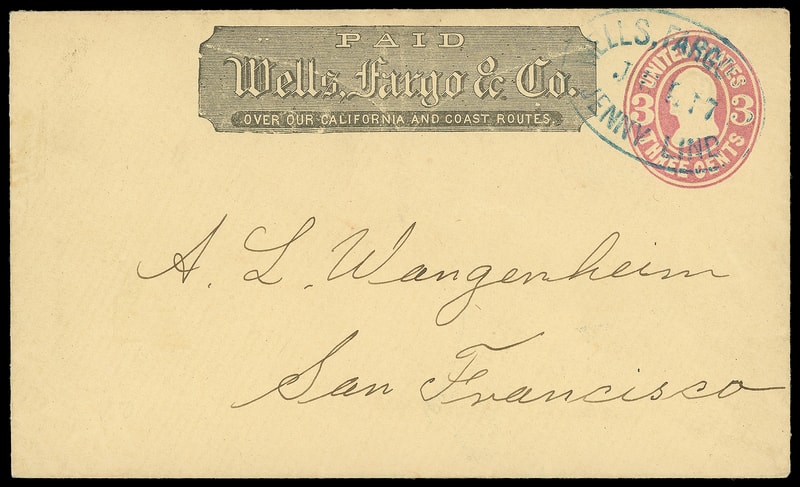 PAID
Wells, Fargo & Co.
OVER OUR CALIFORNIA AND COAST ROUTES.
WELLS, FARGO
17
JENNY LIND
UNITED STATES
3 3
THREE CENTS
A. L. Wangenheim
San Francisco